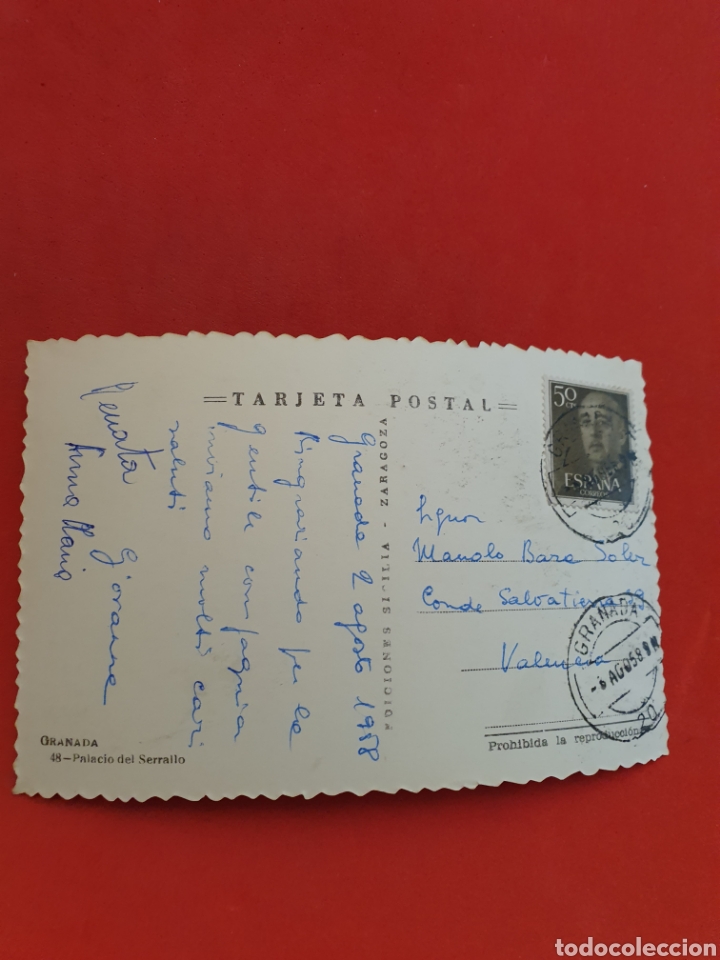 =TARJETA POSTAL=
Granada 2 agosto 1958
Ringraziando per la
gentile compagnia
inviamo molti cari
saluti
Giovanna
Renata
Anna Maria
EDICIONES SICILIA - ZARAGOZA
50 CTS
ESPAÑA
CORREOS
Signor
Manolo Bara Soler
Conde Salvatierra
Valencia
GRANADA
-6 AGO58
20
Prohibida la reproducción
GRANADA
48-Palacio del Serrallo
todocoleccion